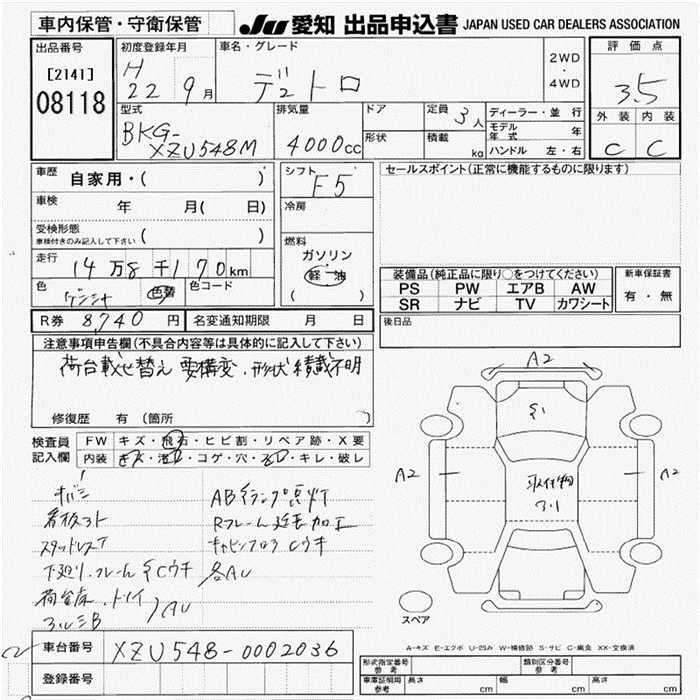 車内保管・守衛保管
JU 愛知 出品申込書 JAPAN USED CAR DEALERS ASSOCIATION
出品番号
[2141]
08118
初度登録年月
H
22 9月
車名・グレード
デュトロ
2WD
・
4WD
評価点
3.5
外装 内装
C C
型式
BKG-
XZU548M
排気量
4000cc
ドア
形状
定員 3人
積載 kg
ディーラー・並行
モデル年式 年
ハンドル 左・右
車歴 自家用・( )
車検 年 月( 日)
受検形態
車検付きのみ記入して下さい ( )
走行 14万8千170km
色 色替 色コード
シフト
F5
冷房
燃料
ガソリン
・
軽油
( )
セールスポイント(正常に機能するものに限ります)
装備品(純正品に限り○をつけてください)
PS PW エアB AW
SR ナビ TV カワシート
新車保証書
有・無
R券 8,740円 名変通知期限 月 日
後日品
注意事項申告欄(不具合内容等は具体的に記入して下さい)
荷台載せ替え 要構変.形状積載不明
修復歴 有 (箇所 )
検査員
記入欄
FW キズ・飛石・ヒビ割・リペア跡・X要
内装 キズ・コゲ・穴・キレ・破レ
看板コト
下廻り.フレーム サCウキ
アルミB
AU
ABランプ点灯
Rフレーム 加工
キャビンフロア Cウキ
各AU
A2
A2
A2
取付物
スペア
A-キズ E-エクボ U-凹み W-補修跡 S-サビ C-腐食 XX-交換済
車台番号 XZU548-0002036
登録番号
形式指定番号
参考
類別区分番号
参考
車庫証明用
参考
長さ cm
幅 cm
高さ cm